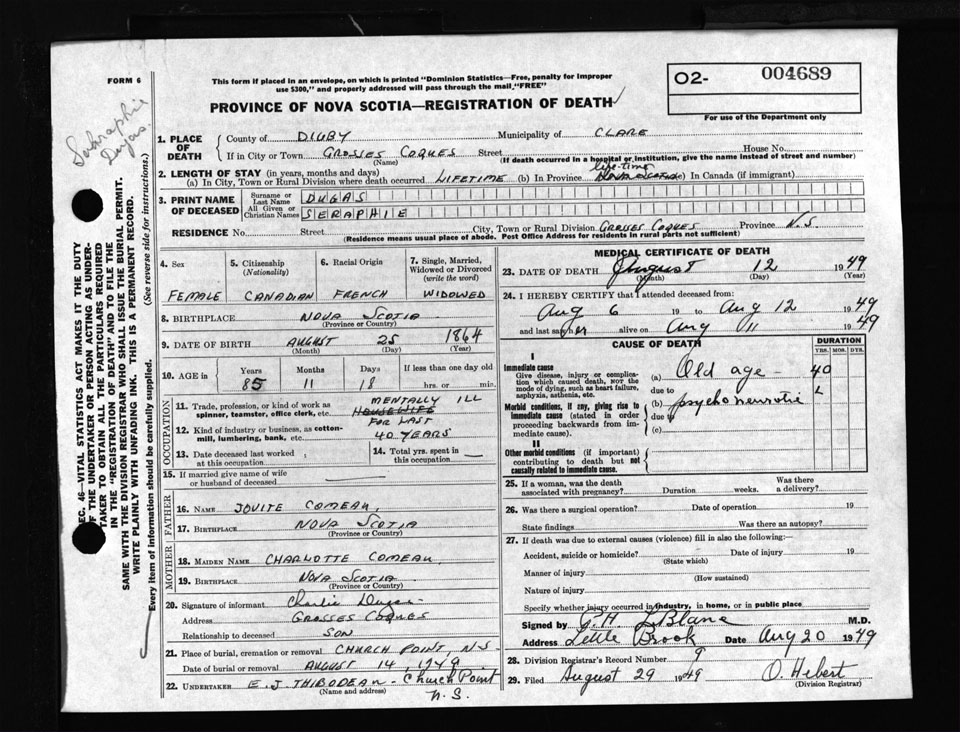 FORM 6
This form if placed in an envelope, on which is printed "Dominion Statistics—Free, penalty for improper
use $300," and properly addressed will pass through the mail, "FREE"
PROVINCE OF NOVA SCOTIA—REGISTRATION OF DEATH
O2- 004689
For use of the Department only
Dugas
SEC. 46—VITAL STATISTICS ACT MAKES IT THE DUTY
OF THE UNDERTAKER OR PERSON ACTING AS UNDER-
TAKER TO OBTAIN ALL THE PARTICULARS REQUIRED
IN THE "REGISTRATION OF DEATH" AND TO FILE THE
SAME WITH THE DIVISION REGISTRAR WHO SHALL ISSUE THE BURIAL PERMIT.
WRITE PLAINLY WITH UNFADING INK. THIS IS A PERMANENT RECORD.
Every item of information should be carefully supplied. (See reverse side for instructions.)
1. PLACE OF DEATH
County of DIGBY Municipality of CLARE
If in City or Town GROSSES COQUES Street House No.
(Name) (If death occurred in a hospital or institution, give the name instead of street and number)
2. LENGTH OF STAY (in years, months and days) life-time
(a) In City, Town or Rural Division where death occurred LIFETIME (b) In Province NOVA SCOTIA (c) In Canada (if immigrant)
3. PRINT NAME OF DECEASED
Surname or Last Name DUGAS
All Given or Christian Names SERAPHIE
RESIDENCE No. Street City, Town or Rural Division GROSSES COQUES Province N.S.
(Residence means usual place of abode. Post Office Address for residents in rural parts not sufficient)
4. Sex FEMALE
5. Citizenship (Nationality) CANADIAN
6. Racial Origin FRENCH
7. Single, Married, Widowed or Divorced (write the word) WIDOWED
8. BIRTHPLACE NOVA SCOTIA
(Province or Country)
9. DATE OF BIRTH AUGUST 25 1864
(Month) (Day) (Year)
10. AGE in Years Months Days If less than one day old
85 11 18 hrs. or min.
OCCUPATION
11. Trade, profession, or kind of work as spinner, teamster, office clerk, etc. MENTALLY ILL
HOUSEWIFE
FOR LAST
12. Kind of industry or business, as cotton-mill, lumbering, bank, etc. 40 YEARS
13. Date deceased last worked at this occupation
14. Total yrs. spent in this occupation
15. If married give name of wife or husband of deceased
FATHER
16. NAME JOVITE COMEAU
17. BIRTHPLACE NOVA SCOTIA
(Province or Country)
MOTHER
18. MAIDEN NAME CHARLOTTE COMEAU
19. BIRTHPLACE NOVA SCOTIA
(Province or Country)
20. Signature of informant Charlie Dugas
Address GROSSES COQUES
Relationship to deceased SON
21. Place of burial, cremation or removal CHURCH POINT, N.S.
Date of burial or removal AUGUST 14, 1949
22. UNDERTAKER E. J. THIBODEAU - Church Point
(Name and address) N.S.
MEDICAL CERTIFICATE OF DEATH
23. DATE OF DEATH August 12 1949
(Month) (Day) (Year)
24. I HEREBY CERTIFY that I attended deceased from:
Aug 6 19 to Aug 12 1949
and last saw her alive on Aug 11 1949
CAUSE OF DEATH
DURATION
YRS. MOS. DYS.
I
Immediate cause
Give disease, injury or complication which caused death, NOT the mode of dying, such as heart failure, asphyxia, asthenia, etc.
(a) Old age - 40
due to
Morbid conditions, if any, giving rise to immediate cause (stated in order proceeding backwards from immediate cause).
(b) psychoneurotic
due to
(c)
II
Other morbid conditions (if important) contributing to death but not causally related to immediate cause.
25. If a woman, was the death associated with pregnancy? Duration weeks. Was there a delivery?
26. Was there a surgical operation? Date of operation 19
State findings Was there an autopsy?
27. If death was due to external causes (violence) fill in also the following:—
Accident, suicide or homicide? Date of injury 19
(State which)
Manner of injury
(How sustained)
Nature of injury
Specify whether injury occurred in industry, in home, or in public place
Signed by P.H. LeBlanc M.D.
Address Little Brook Date Aug 20 1949
28. Division Registrar's Record Number 9
29. Filed August 29 1949 O. Hebert
(Division Registrar)